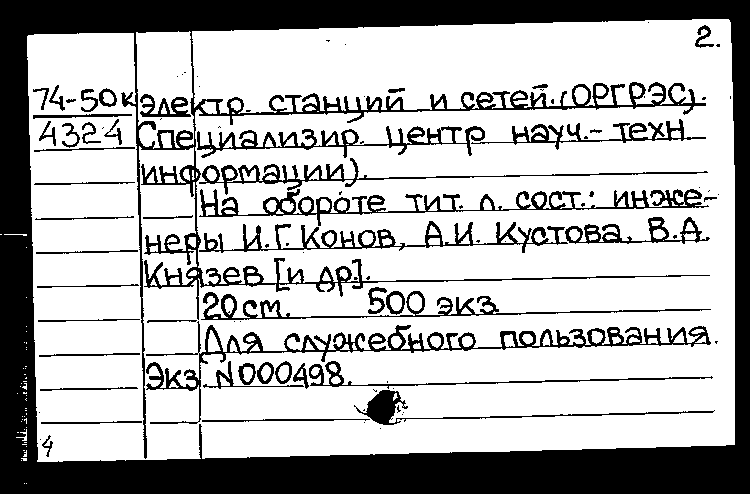 2.
74-50к электр. станций и сетей. (ОРГРЭС).
4324 Специализир. центр науч.-техн.
информации).
На обороте тит. л. сост.: инже-
неры И.Г. Конов, А.И. Кустова, В.А.
Князев [и др.].
20 см. 500 экз.
Для служебного пользования.
Экз. N000498.
4